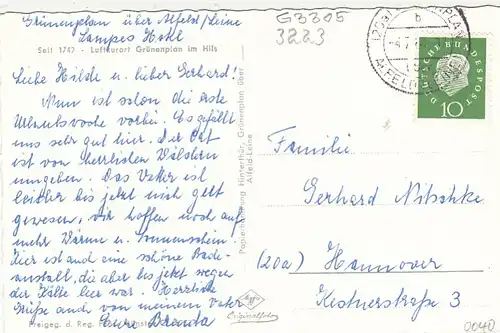 Grünenplan über Alfeld/Leine
Lampes Hotel
Seit 1747 - Luftkurort Grünenplan im Hils
Liebe Hilde u. lieber Gerhard!
Nun ist schon die erste
Urlaubswoche vorbei. Es gefällt
uns sehr gut hier. Der Ort
ist von herrlichen Wäldern
umgeben. Das Wetter ist
leider bis jetzt nich gut
gewesen, wir hoffen noch auf
mehr Wärme u. Sonnenschein.
Hier ist auch eine schöne Bade-
anstalt, die aber bis jetzt wegen
der Kälte leer war. Herzliche
Grüße auch von meinem Vater
Eure Brenda
Freigeg. d. Reg.
Papierhandlung Hinterthür, Grünenplan über
Alfeld-Leine
Agfa
Originalfoto
G3305
3223
(20a)
b
ALFELD
DEUTSCHE BUNDESPOST
10
Familie
Gerhard Nitschke
(20a) Hannover
Kestnerstraße 3
0040